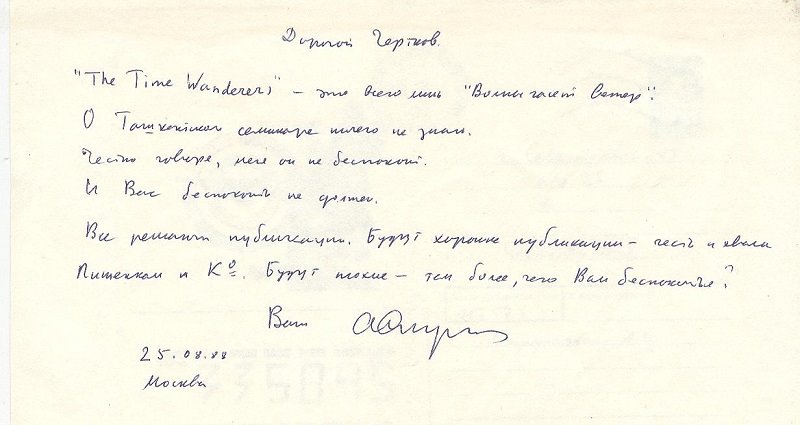 Дорогой Чертков.
"The Time Wanderers" – это всего лишь "Волны гасят ветер".
О Ташкентском семинаре ничего не знаю.
Честно говоря, меня он не беспокоит.
И Вас беспокоить не должен.
Все решают публикации. Будут хорошие публикации – честь и хвала
Пищенкам и Кº. Будут плохие – тем более, чего Вам беспокоиться?
Ваш
25.08.88
Москва